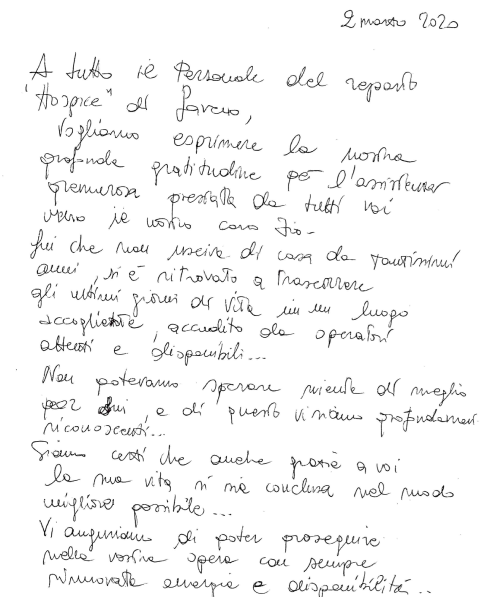 2 marzo 2020
A tutto il Personale del reparto
"Hospice" di
Vogliamo esprimere la nostra
profonda gratitudine per l'assistenza
premurosa prestata da tutti voi
verso il nostro caro zio-
Lui che non usciva di casa da tantissimi
anni, si è ritrovato a trascorrere
gli ultimi giorni di vita in un luogo
accogliente, accudito da operatori
attenti e disponibili...
Non potevamo sperare niente di meglio
per lui, e di questo vi siamo profondamen
riconoscenti...
Siamo certi che anche grazie a voi
la sua vita si sia conclusa nel modo
migliore possibile...
Vi auguriamo di poter proseguire
nella vostra opera con sempre
rinnovata energia e disponibilità..